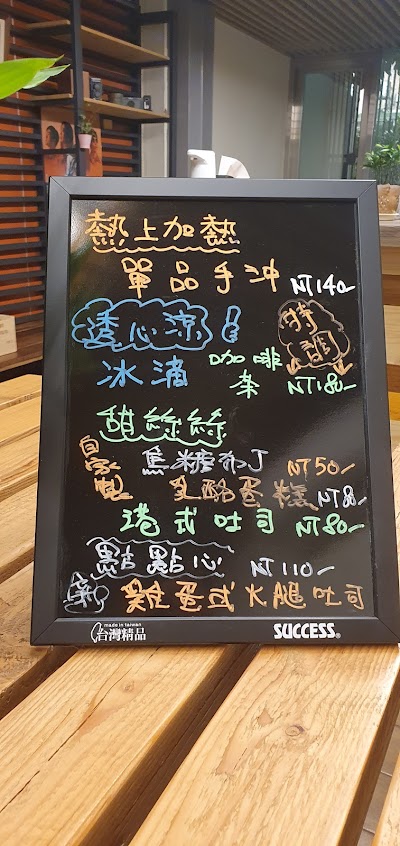 熱上加熱
單品手沖 NT140-
透心涼
特調
冰滴 咖啡 茶 NT180-
甜絲絲
自家製
焦糖布丁 NT50-
乳酪蛋糕 NT80-
港式吐司 NT80-
點點心 NT110-
蛋式火腿吐司
made in taiwan
台灣精品
SUCCESS®